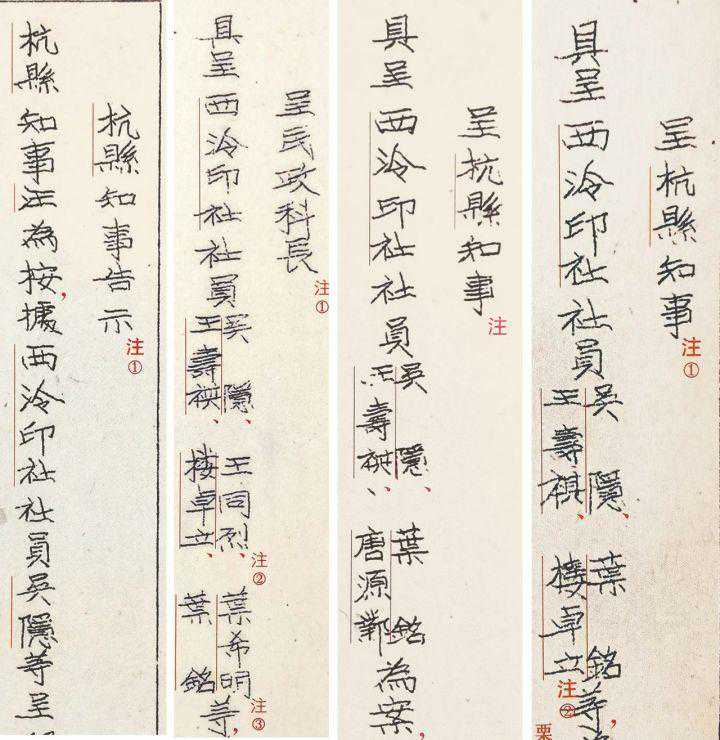 呈杭縣知事
注①
具呈西泠印社社員吳隱、王壽祺、葉銘樓卓立等，
注②
栗
呈杭縣知事
注
具呈西泠印社社員吳隱、王壽祺、葉銘唐源鄴為案，
呈民政科長
注①
具呈西泠印社社員吳隱、王壽祺、王同烈、樓卓立、葉希明葉銘等，
注②
注③
杭縣知事告示
注①
杭縣知事汪為按，據西泠印社社員吳隱等呈